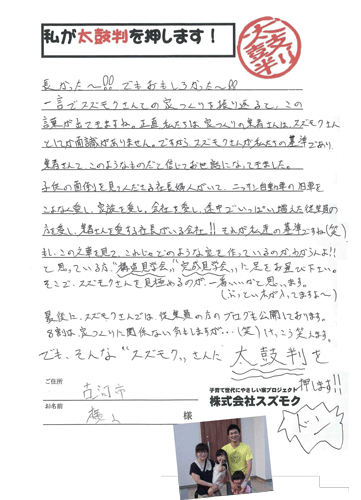 私が太鼓判を押します!
長かった〜!! でもおもしろかった〜!!
一言でスズモクさんとの家づくりを振り返ると、この
言葉が出てきますね。正直私たちは家づくりの業者さんは、スズモクさん
としか面識がありません。ですからスズモクさんが私たちの基準であり、
業者さんて、このようなものだと信じてお世話になってきました。
子供の面倒を見てくださる社長婦人がいて、ニッサン自動車の旧車を
こよなく愛し、家族を愛し、会社を愛し、途中でいっぱい増えた従業員の
方を愛し、業者さんを愛する社長がいる会社!! それが私達の基準ですね(笑)
もし、この文章を見て、これじゃどのような家を作っているのかわからんよ!!
と思っている方、"構造見学会""完成見学会"に足をお運び下さい。
そこで、スズモクさんを見極めるのが一番いいかと思います。
(ぶっとい木が入ってますよ〜)
最後に、スズモクさんでは、従業員の方のブログも公開しております。
8割は家づくりに関係ない気もしますが…(笑)けっこう笑えます。
でも、そんな"スズモク"さんに太鼓判を
押します!!
ご住所
古河市
お名前
様
子育て世代にやさしい家プロジェクト
株式会社スズモク